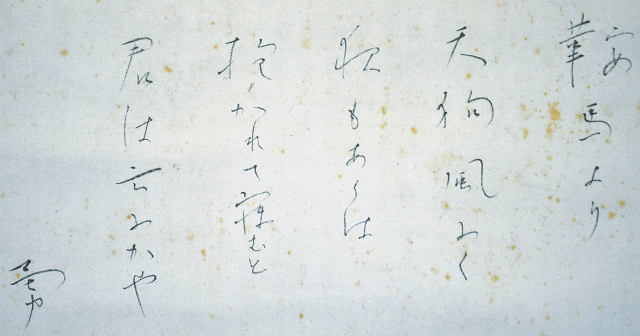 鞍馬より
天狗風ふく
夜もあらは
抱かれて寝むと
君は言ふかや
勇